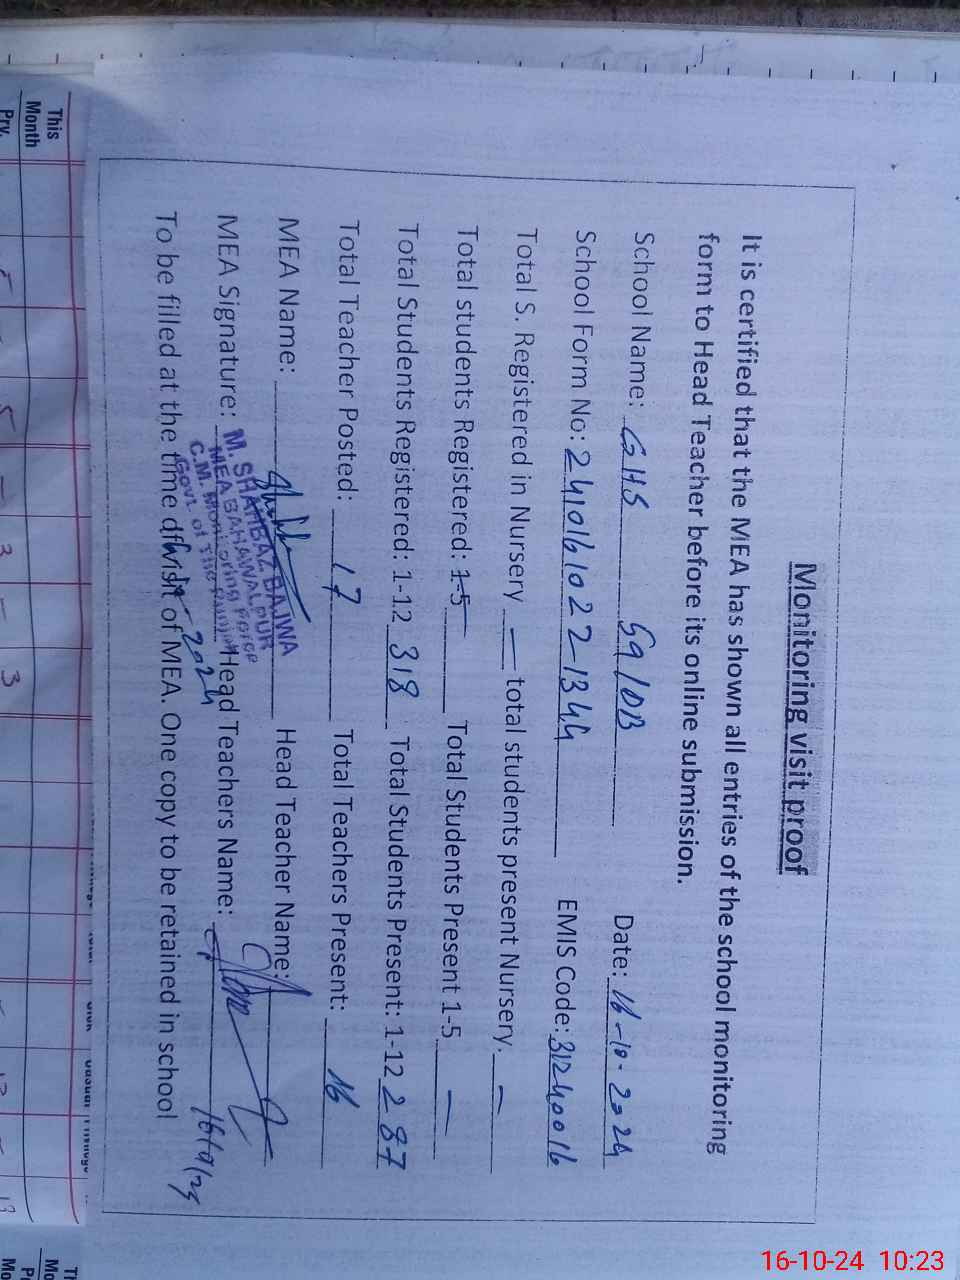 Monitoring visit proof
It is certified that the MEA has shown all entries of the school monitoring
form to Head Teacher before its online submission.
School Name: GHS 59/DB Date: 16-10-2024
School Form No: 2410161022-1344 EMIS Code: 31240016
Total S. Registered in Nursery — total students present Nursery. —
Total students Registered: 1-5 — Total Students Present 1-5 —
Total Students Registered: 1-12 318 Total Students Present: 1-12 287
Total Teacher Posted: 17 Total Teachers Present: 16
MEA Name: Head Teacher Name:
MEA Signature: Head Teachers Name:
M. SHAHBAZ BAJWA
MEA BAHAWALPUR
C.M. Monitoring Force
Govt. of The Punjab
2024
To be filled at the time of visit of MEA. One copy to be retained in school
This
Month
Prv.
5
3
3
Casual
16-10-24 10:23